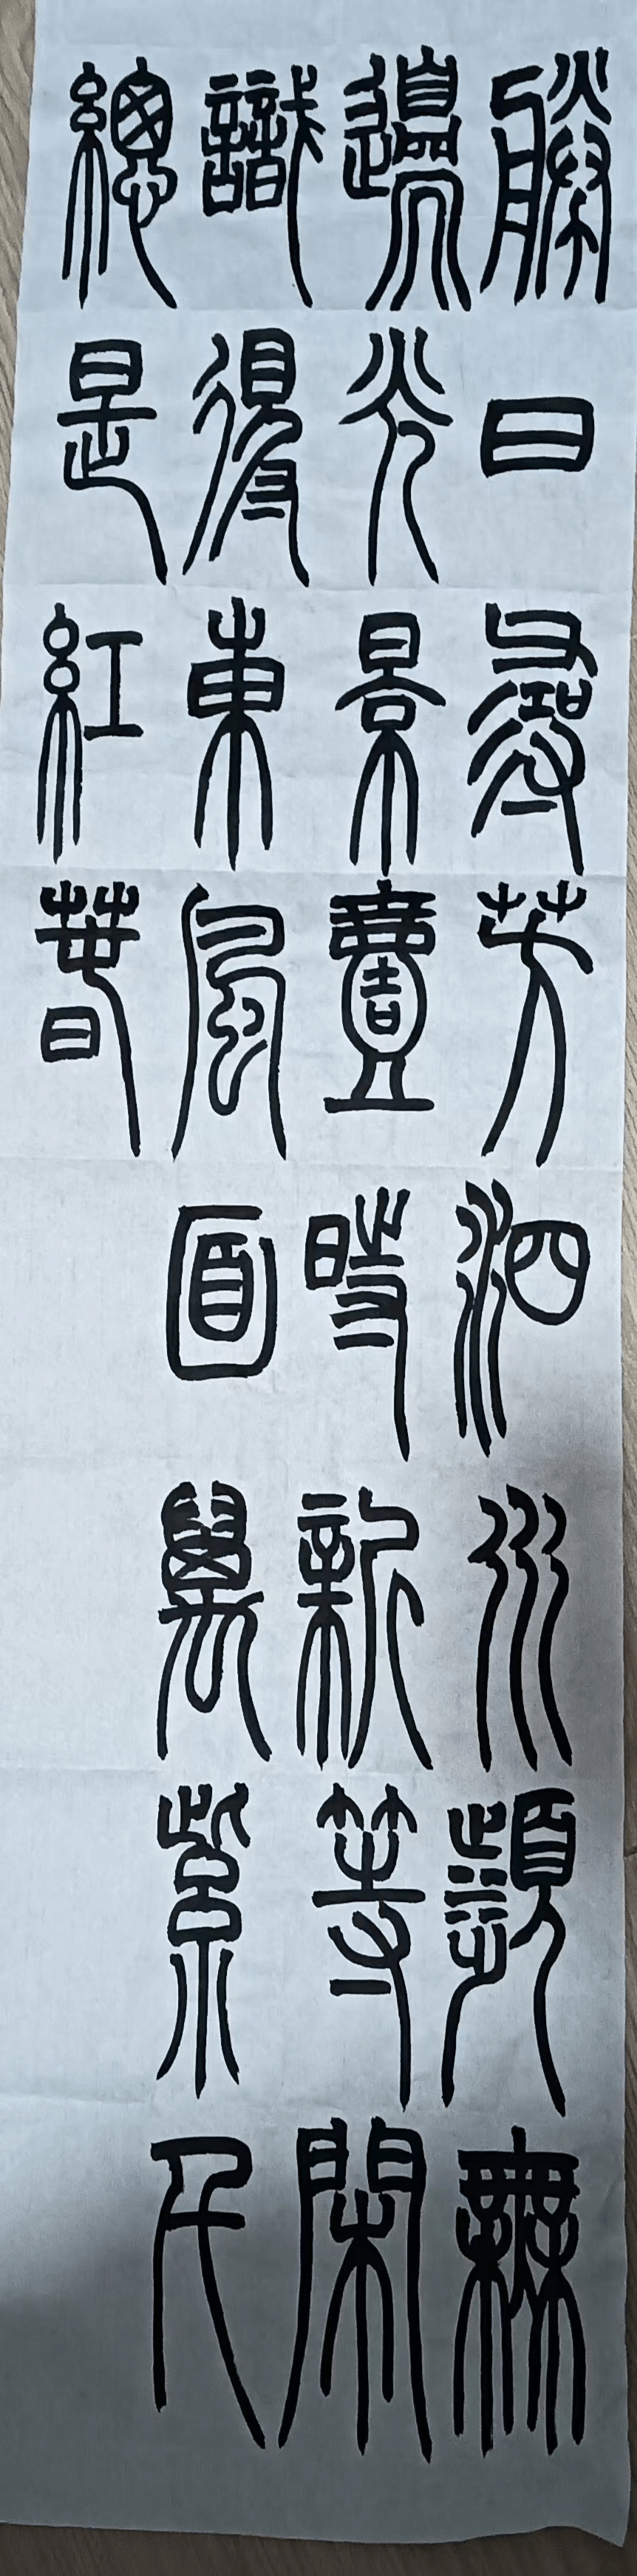 勝日尋芳泗水瀕無
邊光景壹時新等閒
識得東風面萬紫千
總是紅春